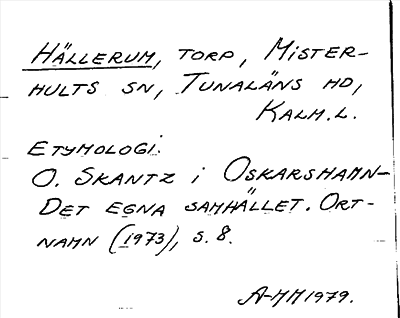 HÄLLERUM, TORP, MISTER-
HULTS SN, TUNALÄNS HD,
KALM. L.
ETYMOLOGI.
O. SKANTZ i OSKARSHAMN-
DET EGNA SAMHÄLLET. ORT-
NAMN (1973), S. 8.
A-MM 1979.